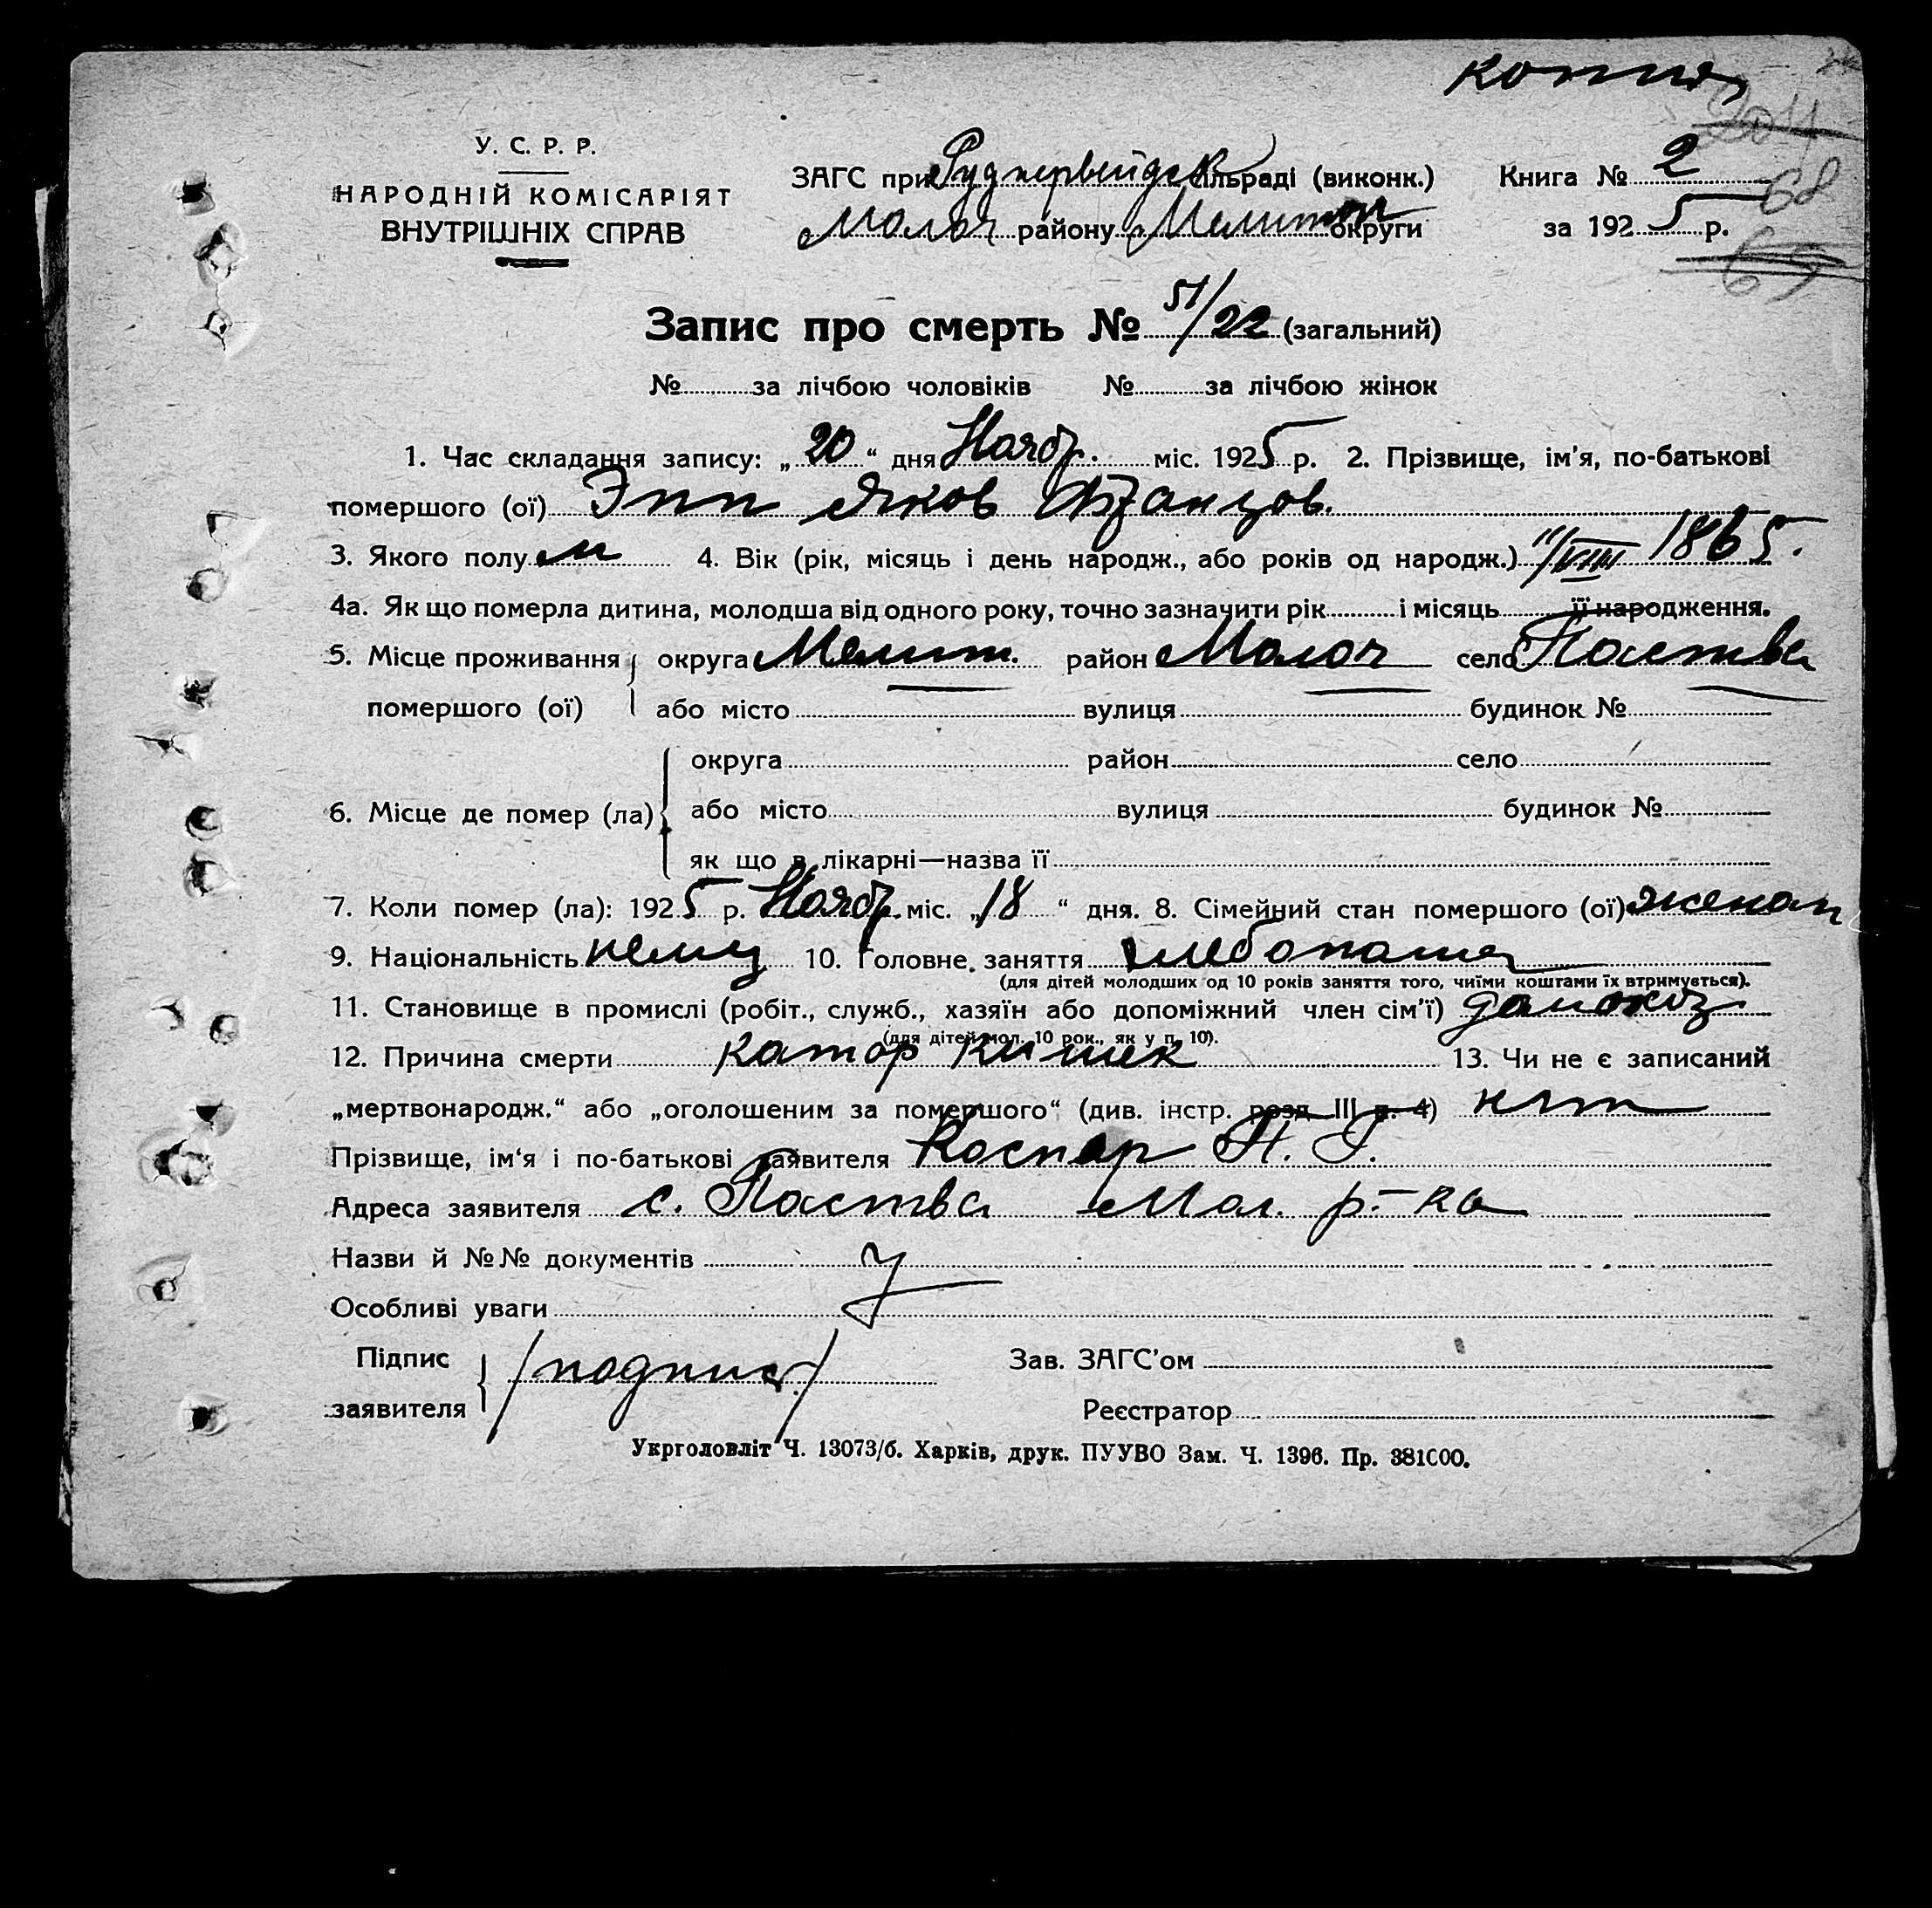 копия
204
У. С. Р. Р.
НАРОДНІЙ КОМІСАРІЯТ
ВНУТРІШНІХ СПРАВ
ЗАГС при Руднервейдск сільраді (виконк.)
Молоч району Мелитоп округи
Книга № 2
68
за 1925 р.
69
Запис про смерть № 51/22 (загальний)
№ за лічбою чоловіків № за лічбою жінок
1. Час складання запису: „20“ дня Ноябр. міс. 1925 р. 2. Прізвище, ім'я, по-батькові
помершого (ої) Эпп Яков Францов.
3. Якого полу м 4. Вік (рік, місяць і день народж., або років од народж.) 11/VIII 1865.
4а. Як що померла дитина, молодша від одного року, точно зазначити рік і місяць її народження.
5. Місце проживання округа Мелит. район Молоч село Паства
помершого (ої) або місто вулиця будинок №
округа район село
6. Місце де помер (ла) або місто вулиця будинок №
як що в лікарні—назва її
7. Коли помер (ла): 1925 р. Ноябр. міс. „18“ дня. 8. Сімейний стан помершого (ої) женат
9. Національність немец 10. Головне заняття хлебопашец
(для дітей молодших од 10 років заняття того, чиїми коштами їх втримується).
11. Становище в промислі (робіт., служб., хазяїн або допоміжний член сім'ї) домохоз
(для дітей мол. 10 рок., як у п. 10).
12. Причина смерти катар кишек 13. Чи не є записаний
„мертвонародж.“ або „оголошеним за помершого“ (див. інстр. розд. III п. 4) нет
Прізвище, ім'я і по-батькові заявителя Коспер П. Г.
Адреса заявителя с. Паства Мол. р-ка
Назви й №№ документів
Особливі уваги
Підпис
заявителя /подпис/
Зав. ЗАГС'ом
Реєстратор
Укрголовліт Ч. 13073/б. Харків, друк. ПУУВО Зам. Ч. 1396. Пр. 381000.